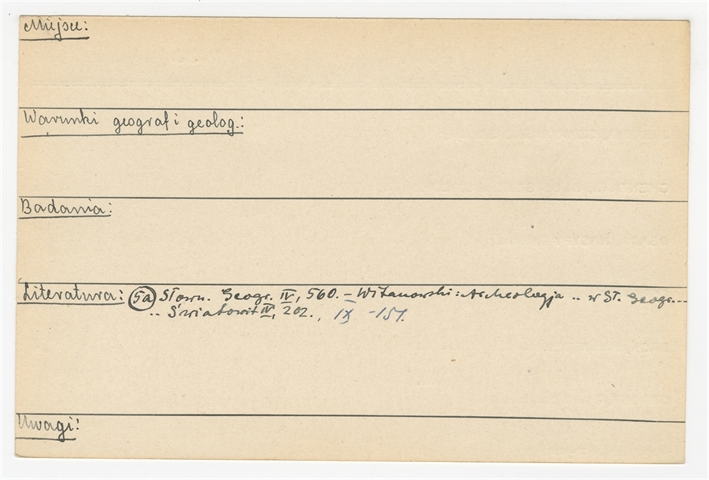 Miejsce:
Warunki geograf i geolog.:
Badania:
Literatura: (5a) Słown. Geogr. IV, 560. = Witanowski: Archeologja .. w Sł. Geogr....
.. Światowit IV, 202., IX - 151.
Uwagi: